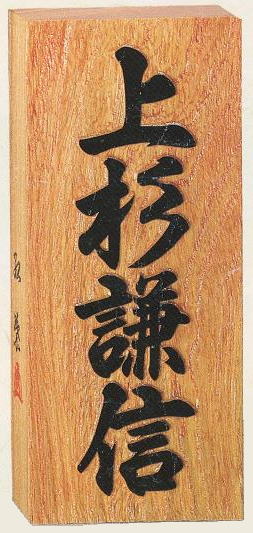 上杉謙信